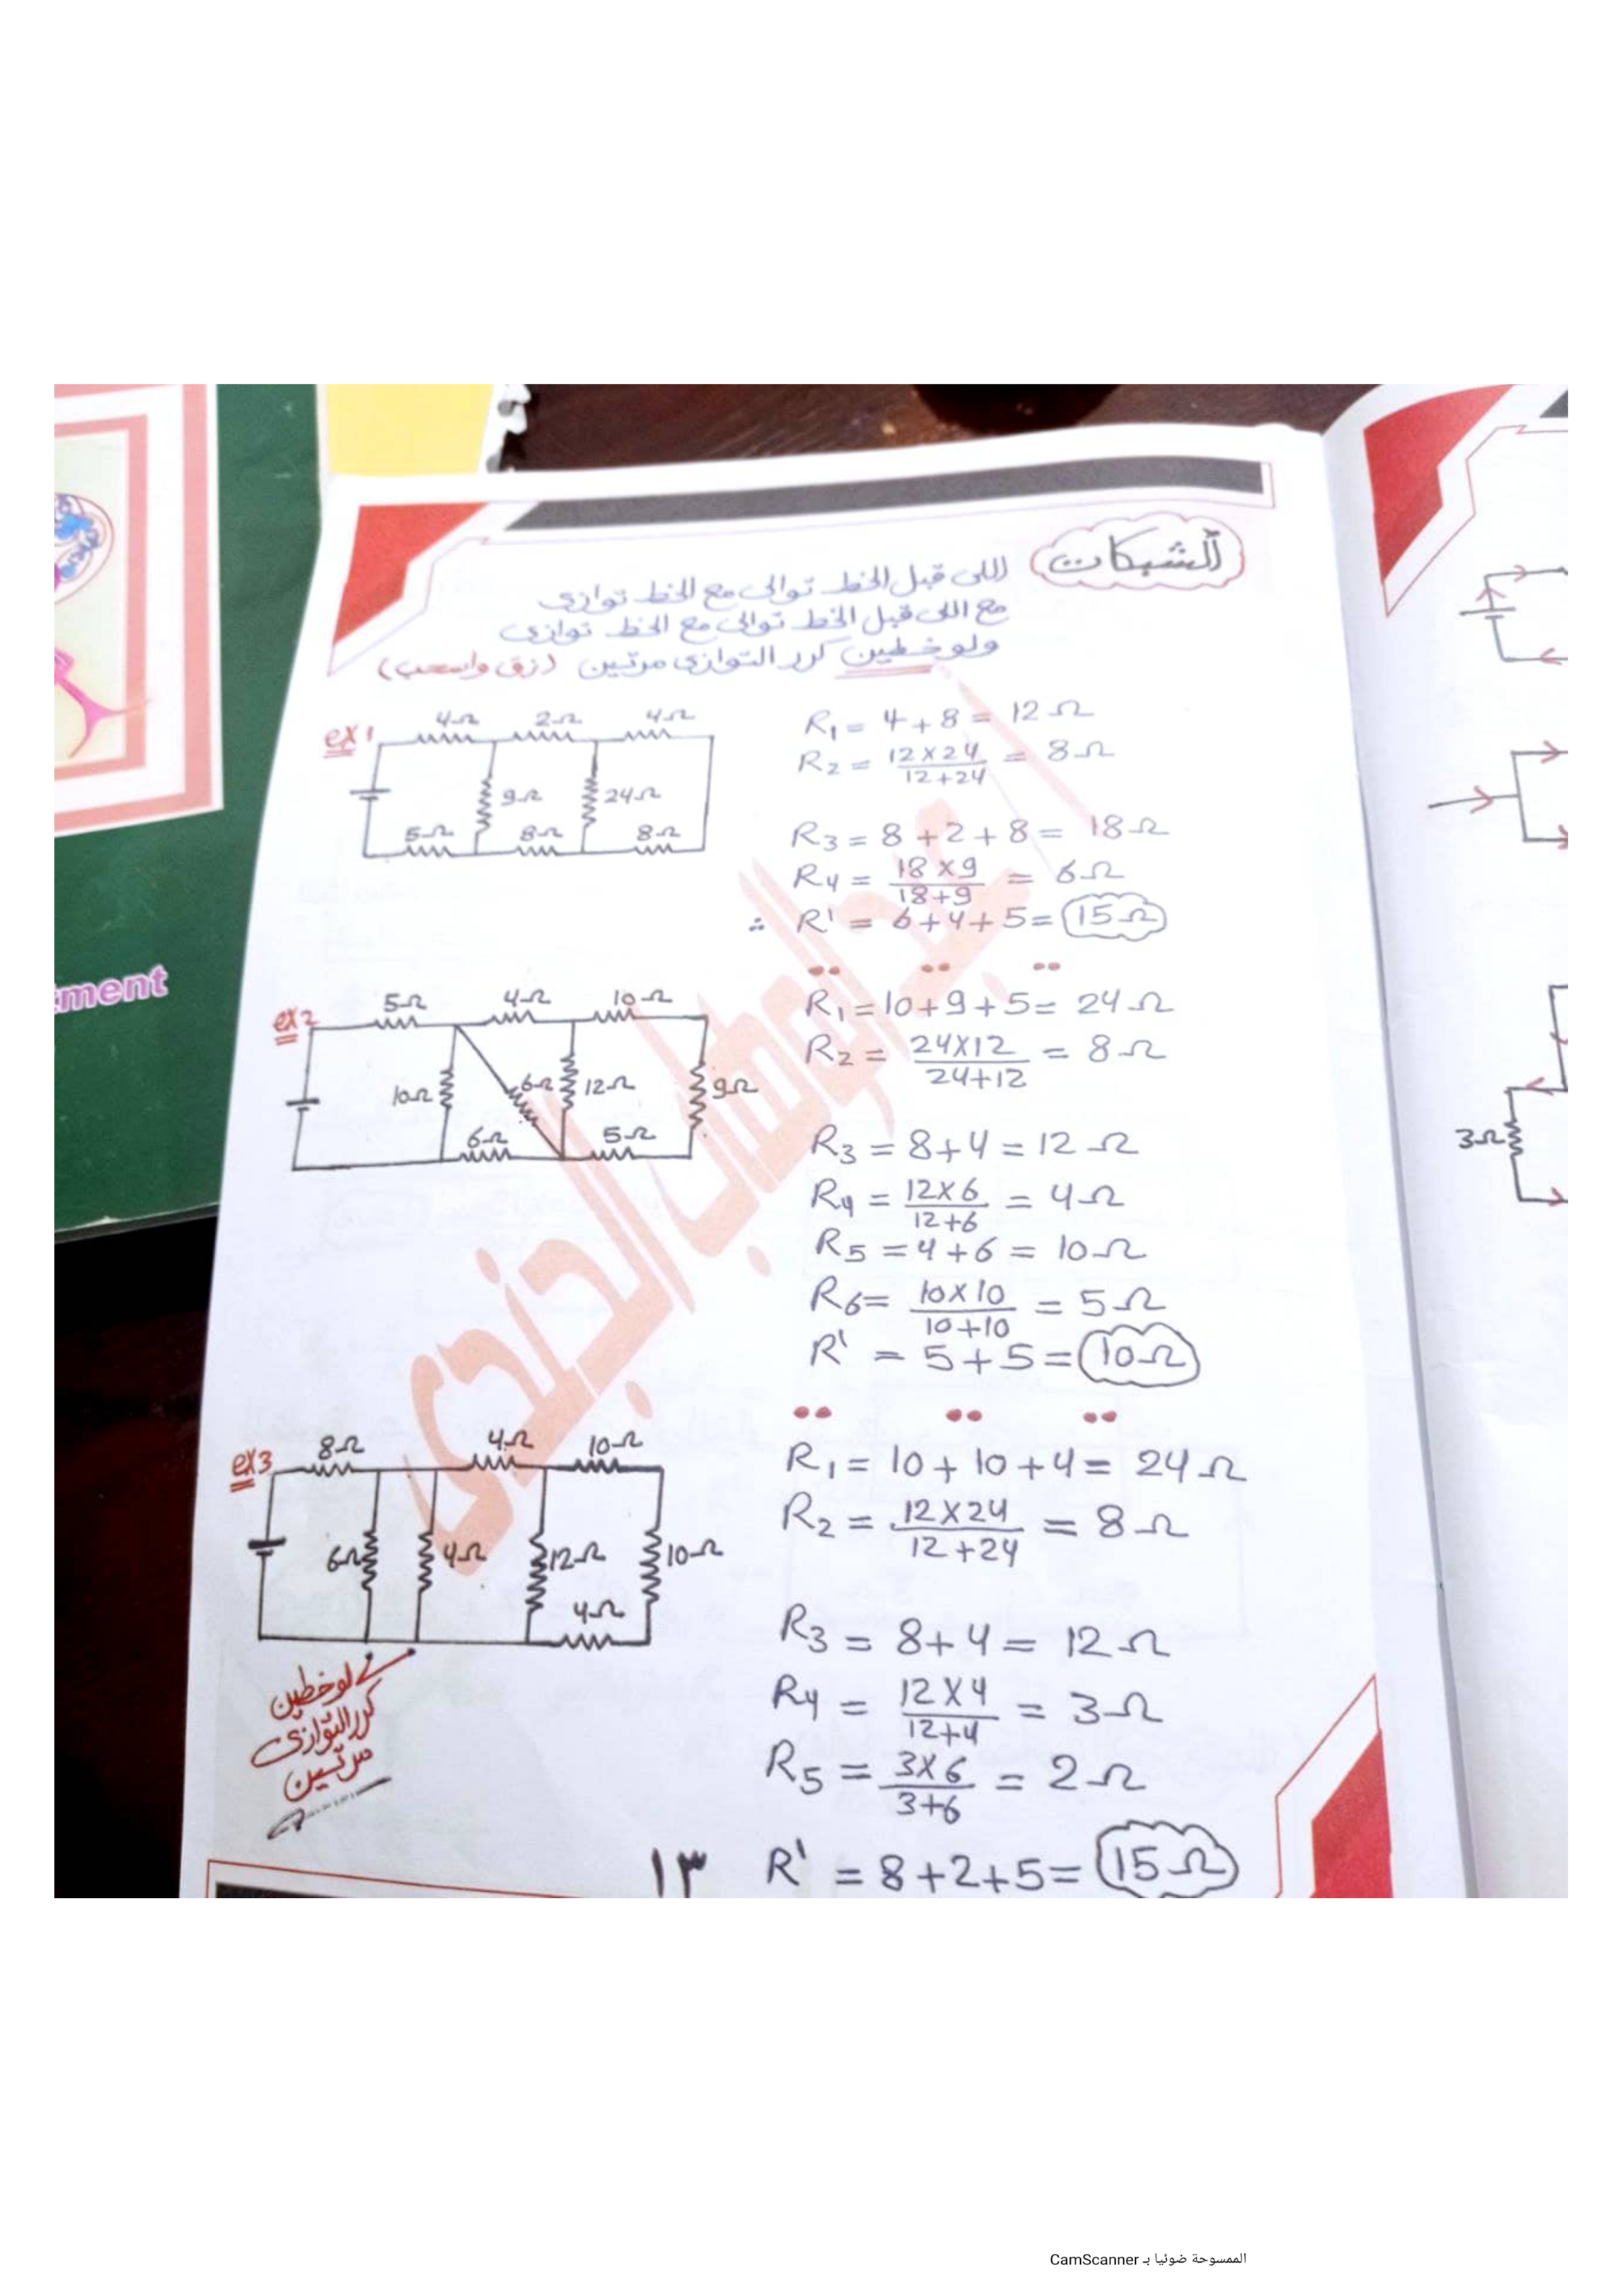 الشبكات
اللى قبل الخط توالى مع الخط توازى
مع اللى قبل الخط توالى مع الخط توازى
ولو خطين كرر التوازى مرتين (زق واسحب)
ex1
4Ω 2Ω 4Ω
9Ω 24Ω
5Ω 8Ω 8Ω
R₁ = 4 + 8 = 12 Ω
R₂ = 12×24 / 12+24 = 8Ω
R₃ = 8 + 2 + 8 = 18Ω
R₄ = 18×9 / 18+9 = 6Ω
∴ R' = 6+4+5 = 15Ω
ex2
5Ω 4Ω 10Ω
10Ω 6Ω 12Ω 9Ω
6Ω 5Ω
R₁ = 10+9+5 = 24Ω
R₂ = 24×12 / 24+12 = 8Ω
R₃ = 8+4 = 12Ω
R₄ = 12×6 / 12+6 = 4Ω
R₅ = 4+6 = 10Ω
R₆ = 10×10 / 10+10 = 5Ω
R' = 5+5 = 10Ω
ex3
8Ω 4Ω 10Ω
6Ω 4Ω 12Ω 10Ω
4Ω
لو خطين
كرر التوازى
مرتين
R₁ = 10 + 10 + 4 = 24Ω
R₂ = 12×24 / 12+24 = 8Ω
R₃ = 8+4 = 12Ω
R₄ = 12×4 / 12+4 = 3Ω
R₅ = 3×6 / 3+6 = 2Ω
R' = 8+2+5 = 15Ω
١٣
عبدالوهاب الجندى
ment
3Ω
الممسوحة ضوئيا بـ CamScanner